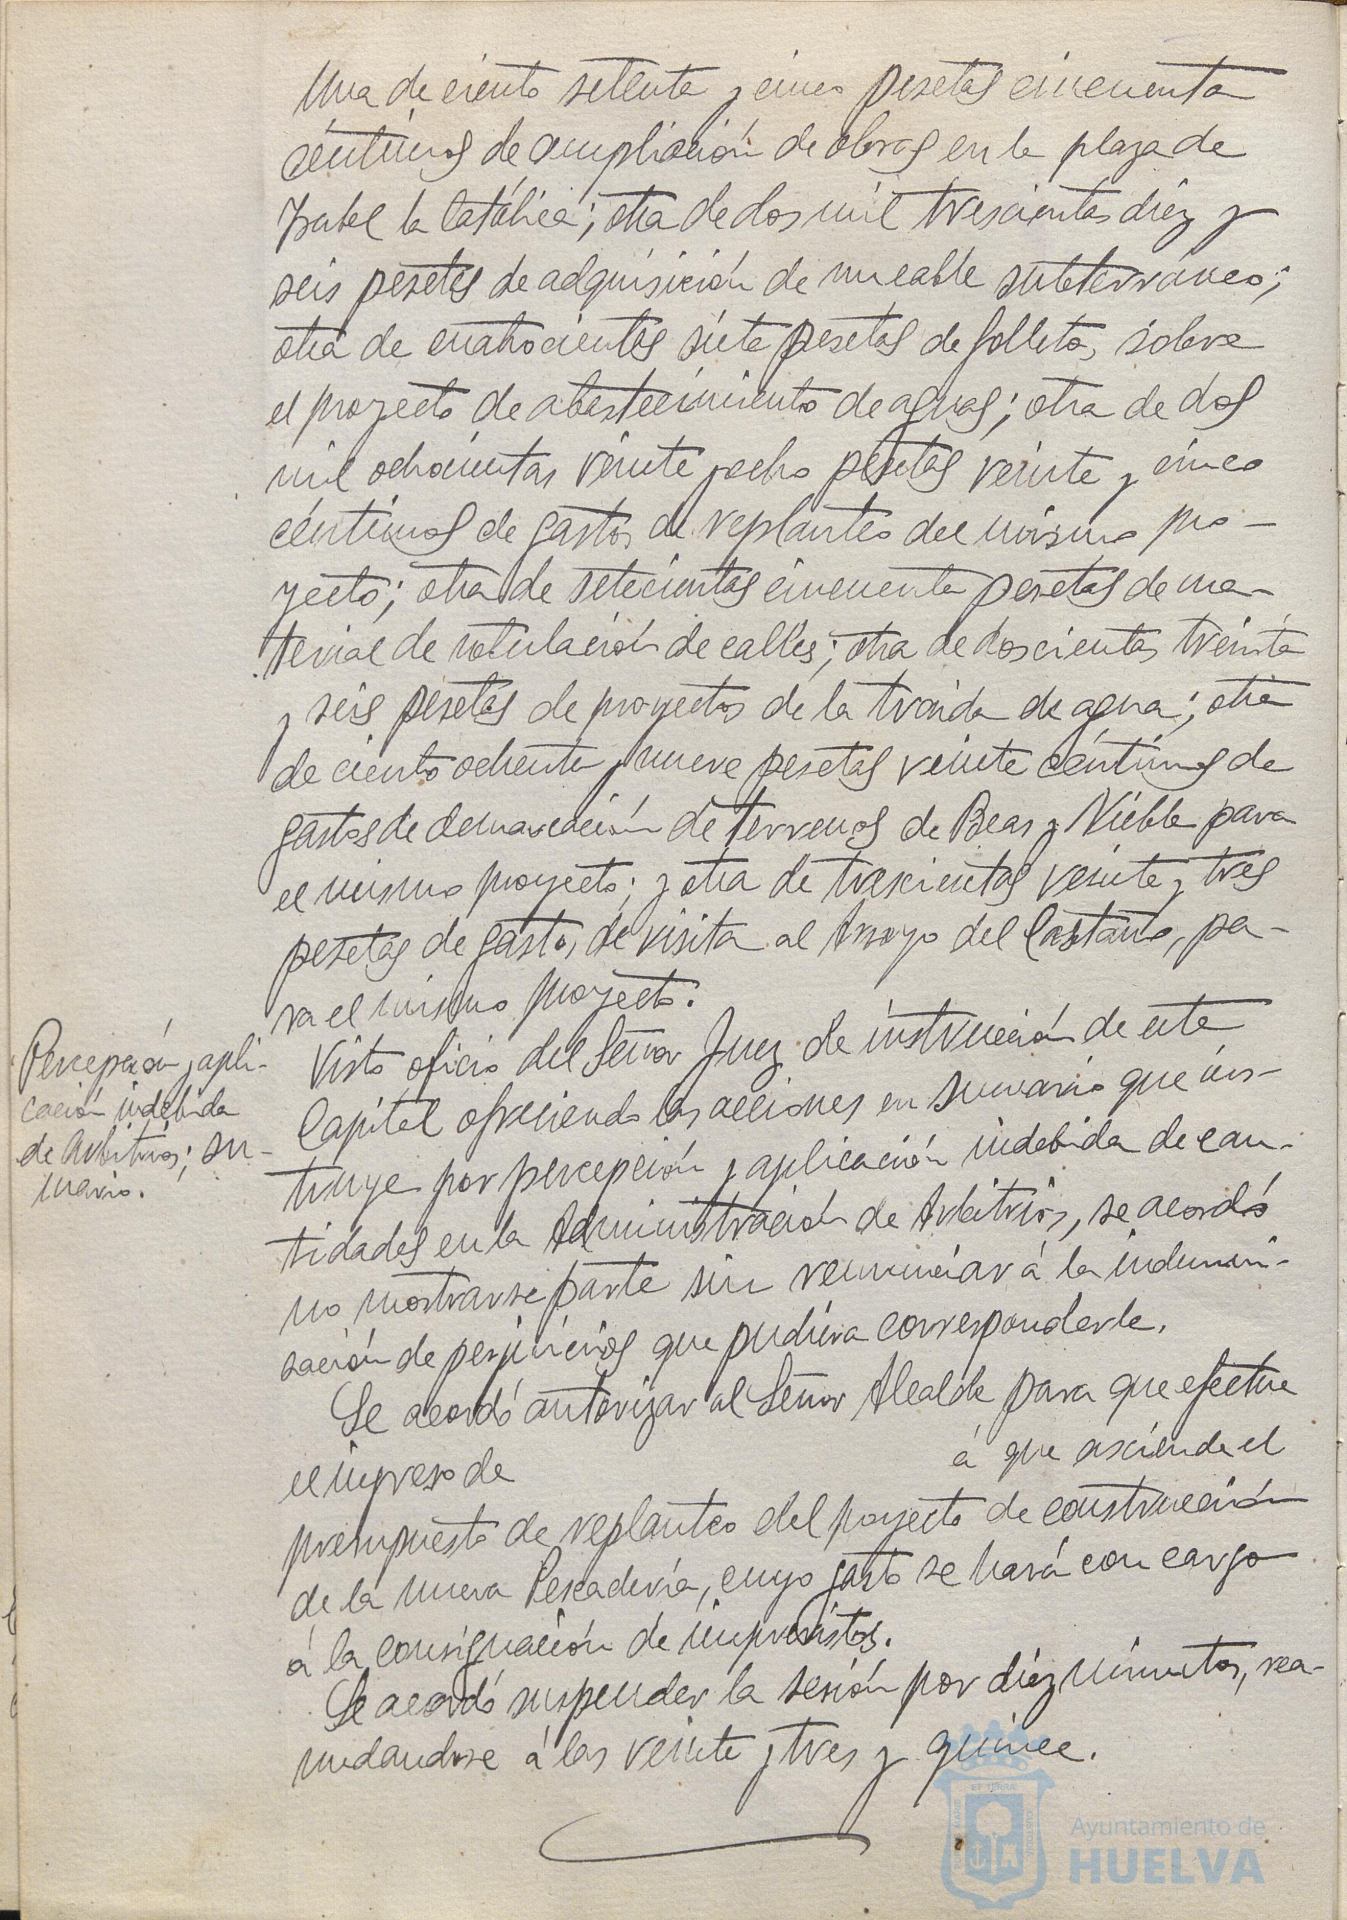 Una de ciento setenta y cinco pesetas cincuenta
céntimos de ampliación de obras en la plaza de
Isabel la Católica; otra de dos mil trescientas diez y
seis pesetas de adquisición de un cable subterráneo;
otra de cuatrocientas siete pesetas de folletos, sobre
el proyecto de abastecimiento de aguas; otra de dos
mil ochocientas veinte y ocho pesetas veinte y cinco
céntimos de gastos de replanteo del mismo pro-
yecto; otra de setecientas cincuenta pesetas de ma-
terial de rotulación de calles; otra de doscientas treinta
y seis pesetas de proyectos de la traida de agua; otra
de ciento ochenta y nueve pesetas veinte céntimos de
gastos de demarcación de terrenos de Beas y Niebla para
el mismo proyecto; y otra de trescientas veinte y tres
pesetas de gastos de visita al Arroyo del Castaño, pa-
ra el mismo proyecto.
Percepción y apli-
cación indebida
de Arbitrios; su-
mario.
Visto oficio del Señor Juez de instrucción de esta
Capital ofreciendo las acciones en sumario que ins-
truye por percepción y aplicación indebida de can-
tidades en la Administración de Arbitrios, se acordó
no mostrarse parte sin renunciar á la indemni-
sación de perjuicios que pudiera corresponderle.
Se acordó autorizar al Señor Alcalde para que efectue
el ingreso de á que asciende el
presupuesto de replanteo del proyecto de construcción
de la nueva Pescadería, cuyo gasto se hará con cargo
á la consignación de imprevistos.
Se acordó suspender la sesión por diez minutos, rea-
nudandose á las veinte y tres y quince.
Ayuntamiento de
HUELVA